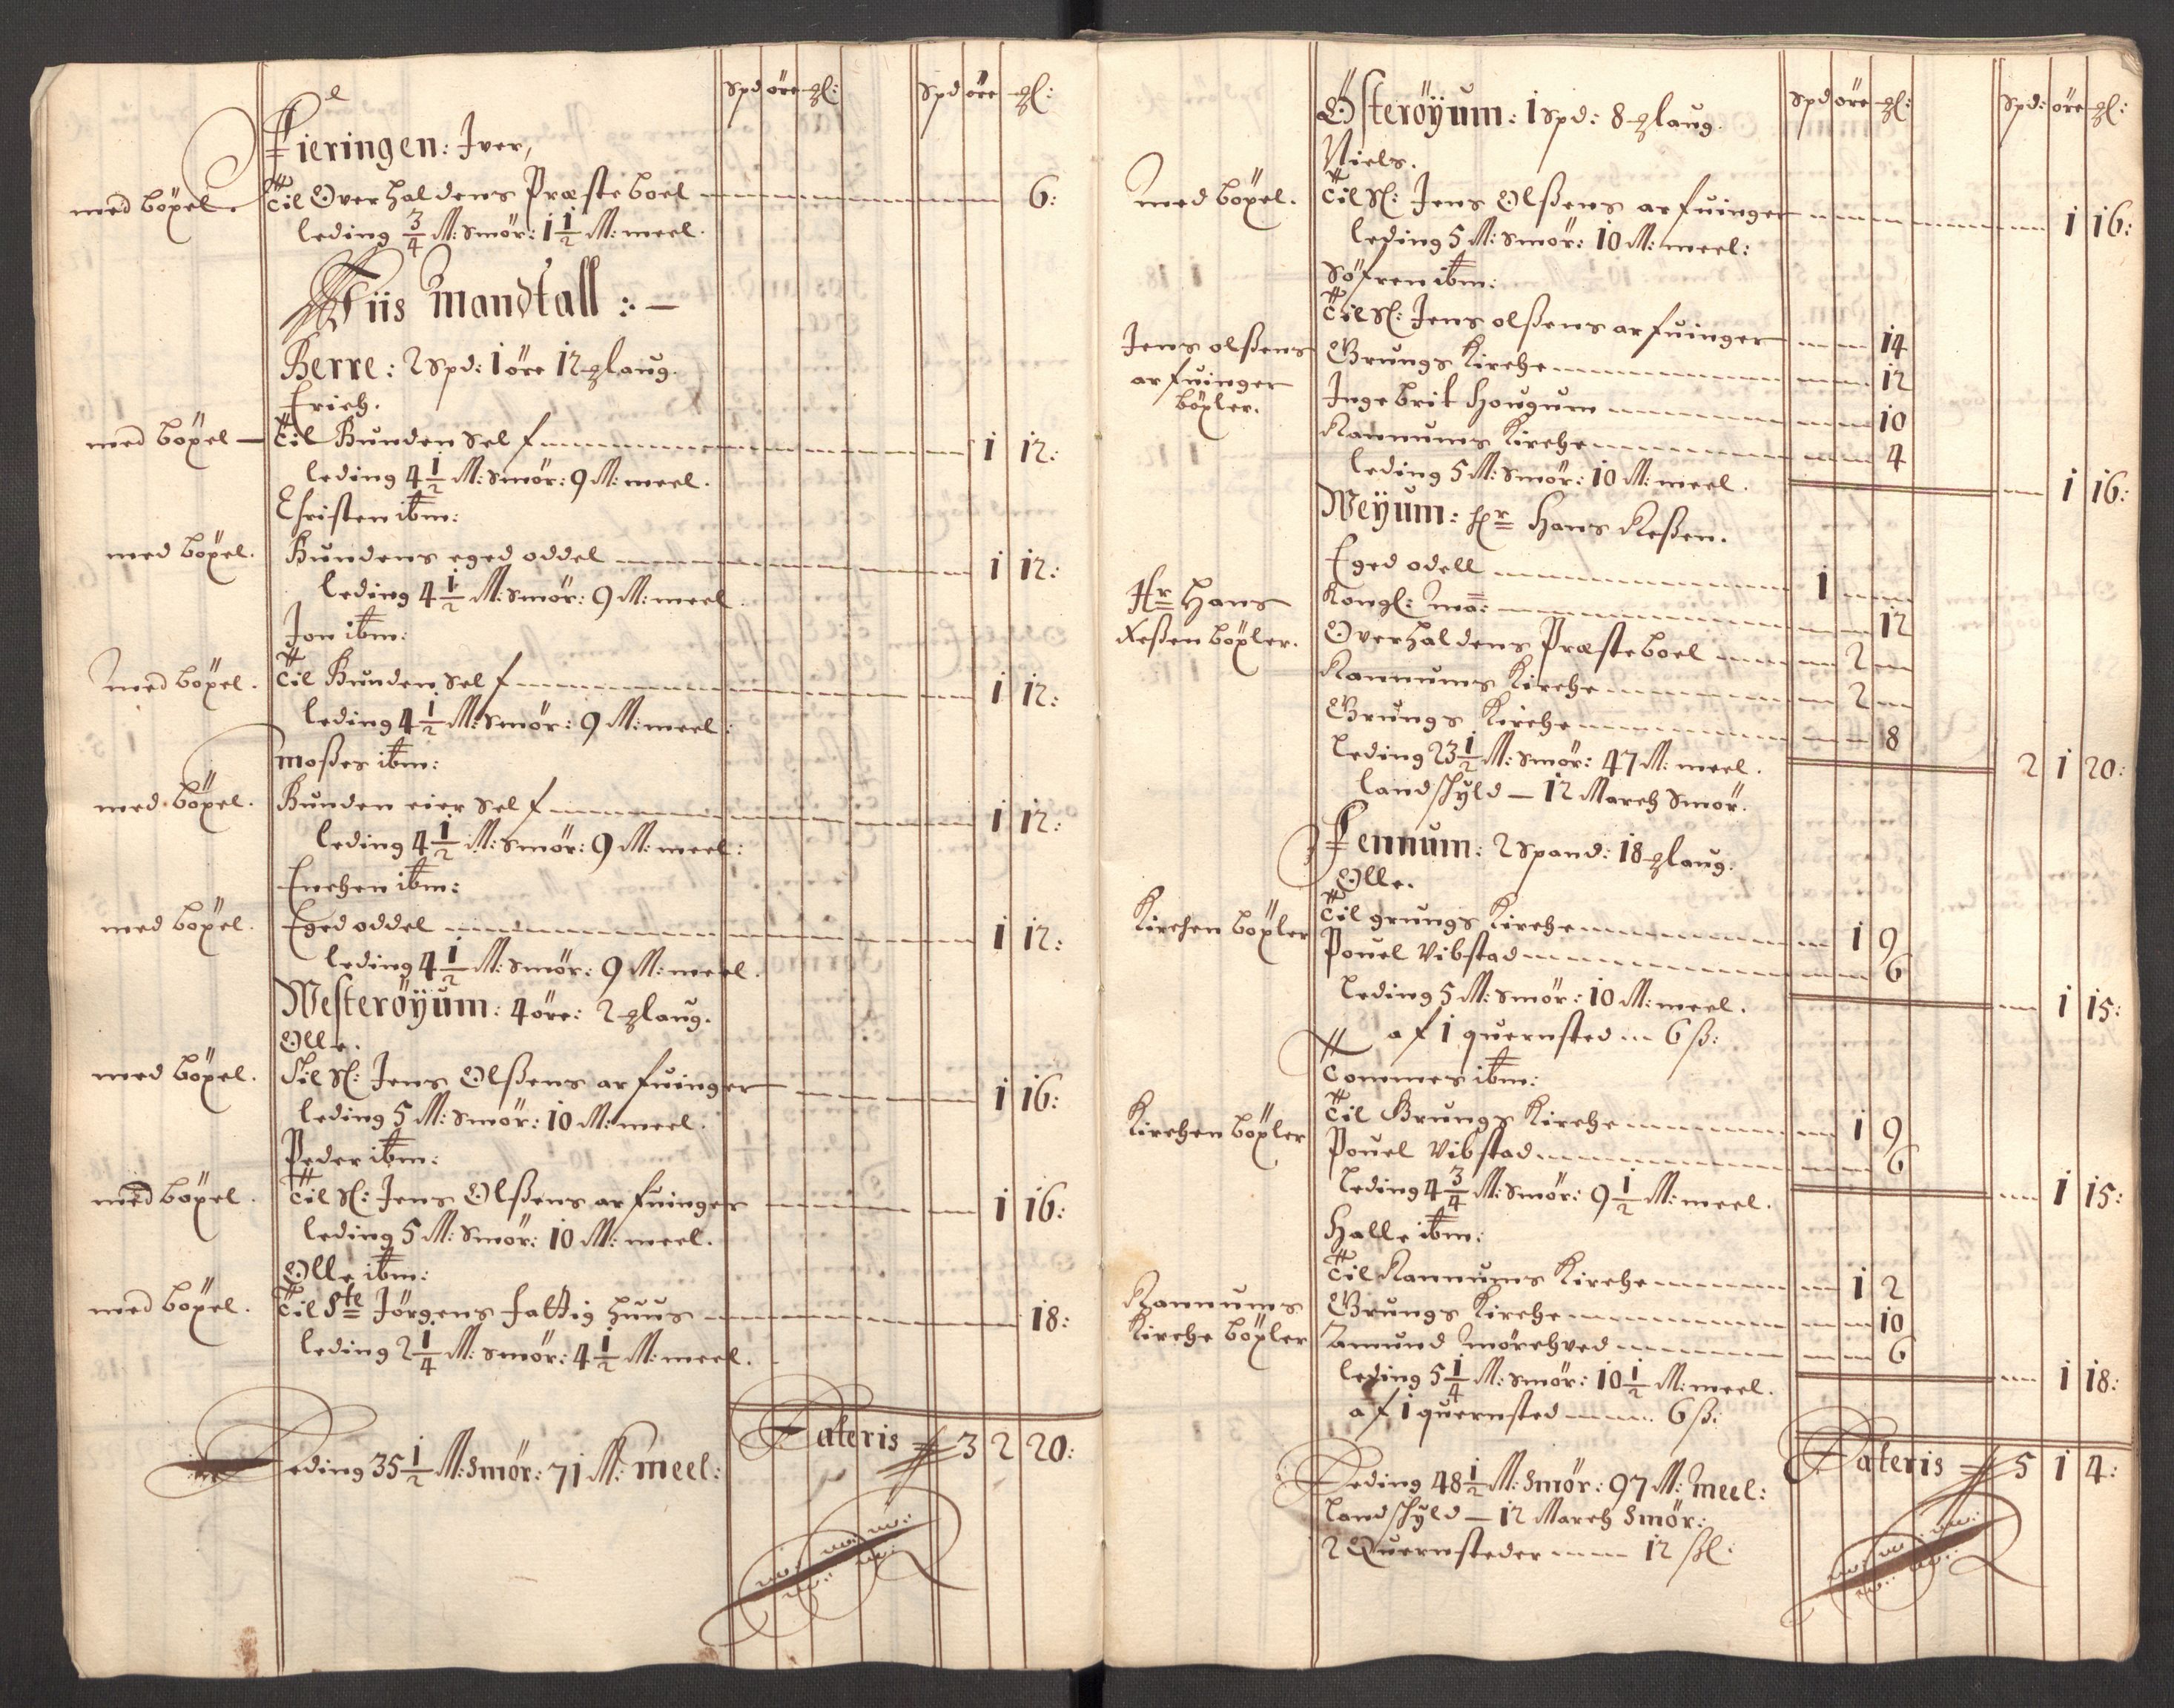 Spd öre gl: Spd öre gl:
Fieringen: Iver,
med böxel. Til Overhaldens Præsteboel 6:
leding 3/4 M: smör: 1 1/2 M: meel.
Fiis Mandtall :-
Berre: 2 Spd: 1 öre 12 gl aug.
Erich.
med böxel - Til Bunden Self 1 12:
leding 4 1/2 M: smör: 9 M: meel.
Christen ibm:
med böxel. Bundens eged oddel 1 12:
leding 4 1/2 M: smör: 9 M: meel.
Jon ibm:
med böxel. Til Bunden Self 1 12:
leding 4 1/2 M: smör: 9 M: meel:
Moßes ibm:
med böxel. Bunden eier Self 1 12:
leding 4 1/2 M: smör: 9 M: meel:
Enchen ibm:
med böxel. Eged oddel 1 12:
leding 4 1/2 M: smör: 9 M: meel.
Westeröyum: 4 öre: 2 gl aug.
Olle.
med böxel. Til Sl: Jens Olßens arfuinger 1 16:
leding 5 M: smör: 10 M: meel.
Peder ibm:
med böxel. Til Sl: Jens Olßens arfuinger 1 16:
leding 5 M: Smör: 10 M: meel.
Olle ibm:
med böxel. Til Ste Jörgens fattig huus 18:
leding 2 1/4 M: smör: 4 1/2 M: meel.
Lateris 3 2 20:
Leding 35 1/2 M: Smör: 71 M: meel:
Spd öre gl: Spd: öre gl:
Österöyum: 1 Spd: 8 gl aug.
Niels.
med böxel. Til Sl: Jens Olßens arfuinger 1 16:
leding 5 M: Smör: 10 M: meel:
Söfren ibm:
Til Sl: Jens olßens arfuinger 14
Jens olßens Grungs Kirche 12
arfuinger Ingebrit Hougum 10
böxler. Rannums Kirche 4
leding 5 M: Smör: 10 M: meel. 1 16:
Weyum: Hr Hans Reßen.
Eged odell 1
Hr Hans Kongl: Mä: 12
Reßen böxler. Overhaldens Præsteboel 2
Rannums Kirche 2
Grungs Kirche 8
leding 23 1/2 M: Smör: 47 M: meel. 2 1 20:
landskyld - 12 March Smör.
Fennum: 2 Spand: 18 gl aug:
Olle.
Kirchen böxler Til grungs Kirche 1 9
Pouel Vibstad 6
leding 5 M: smör: 10 M: meel. 1 15:
af 1 quernsted 6 ß:
Tommes ibm:
Kirchen böxler Til Grungs Kirche 1 9
Pouel Vibstad 6
leding 4 3/4 M: Smör: 9 1/2 M: meel. 1 15:
Halle ibm:
Til Rannums Kirche 1 2
Rannums Grungs Kirche 10
Kirche böxler Amund Mörchved 6
leding 5 1/4 M: smör: 10 1/2 M: meel. 1 18:
af 1 quernsted 6 ß:
Lateris 5 1 4:
Leding 48 1/2 M: Smör: 97 M: Meel:
Landskyld - 12 March Smör:
2 Quernsteder 12 ßl: